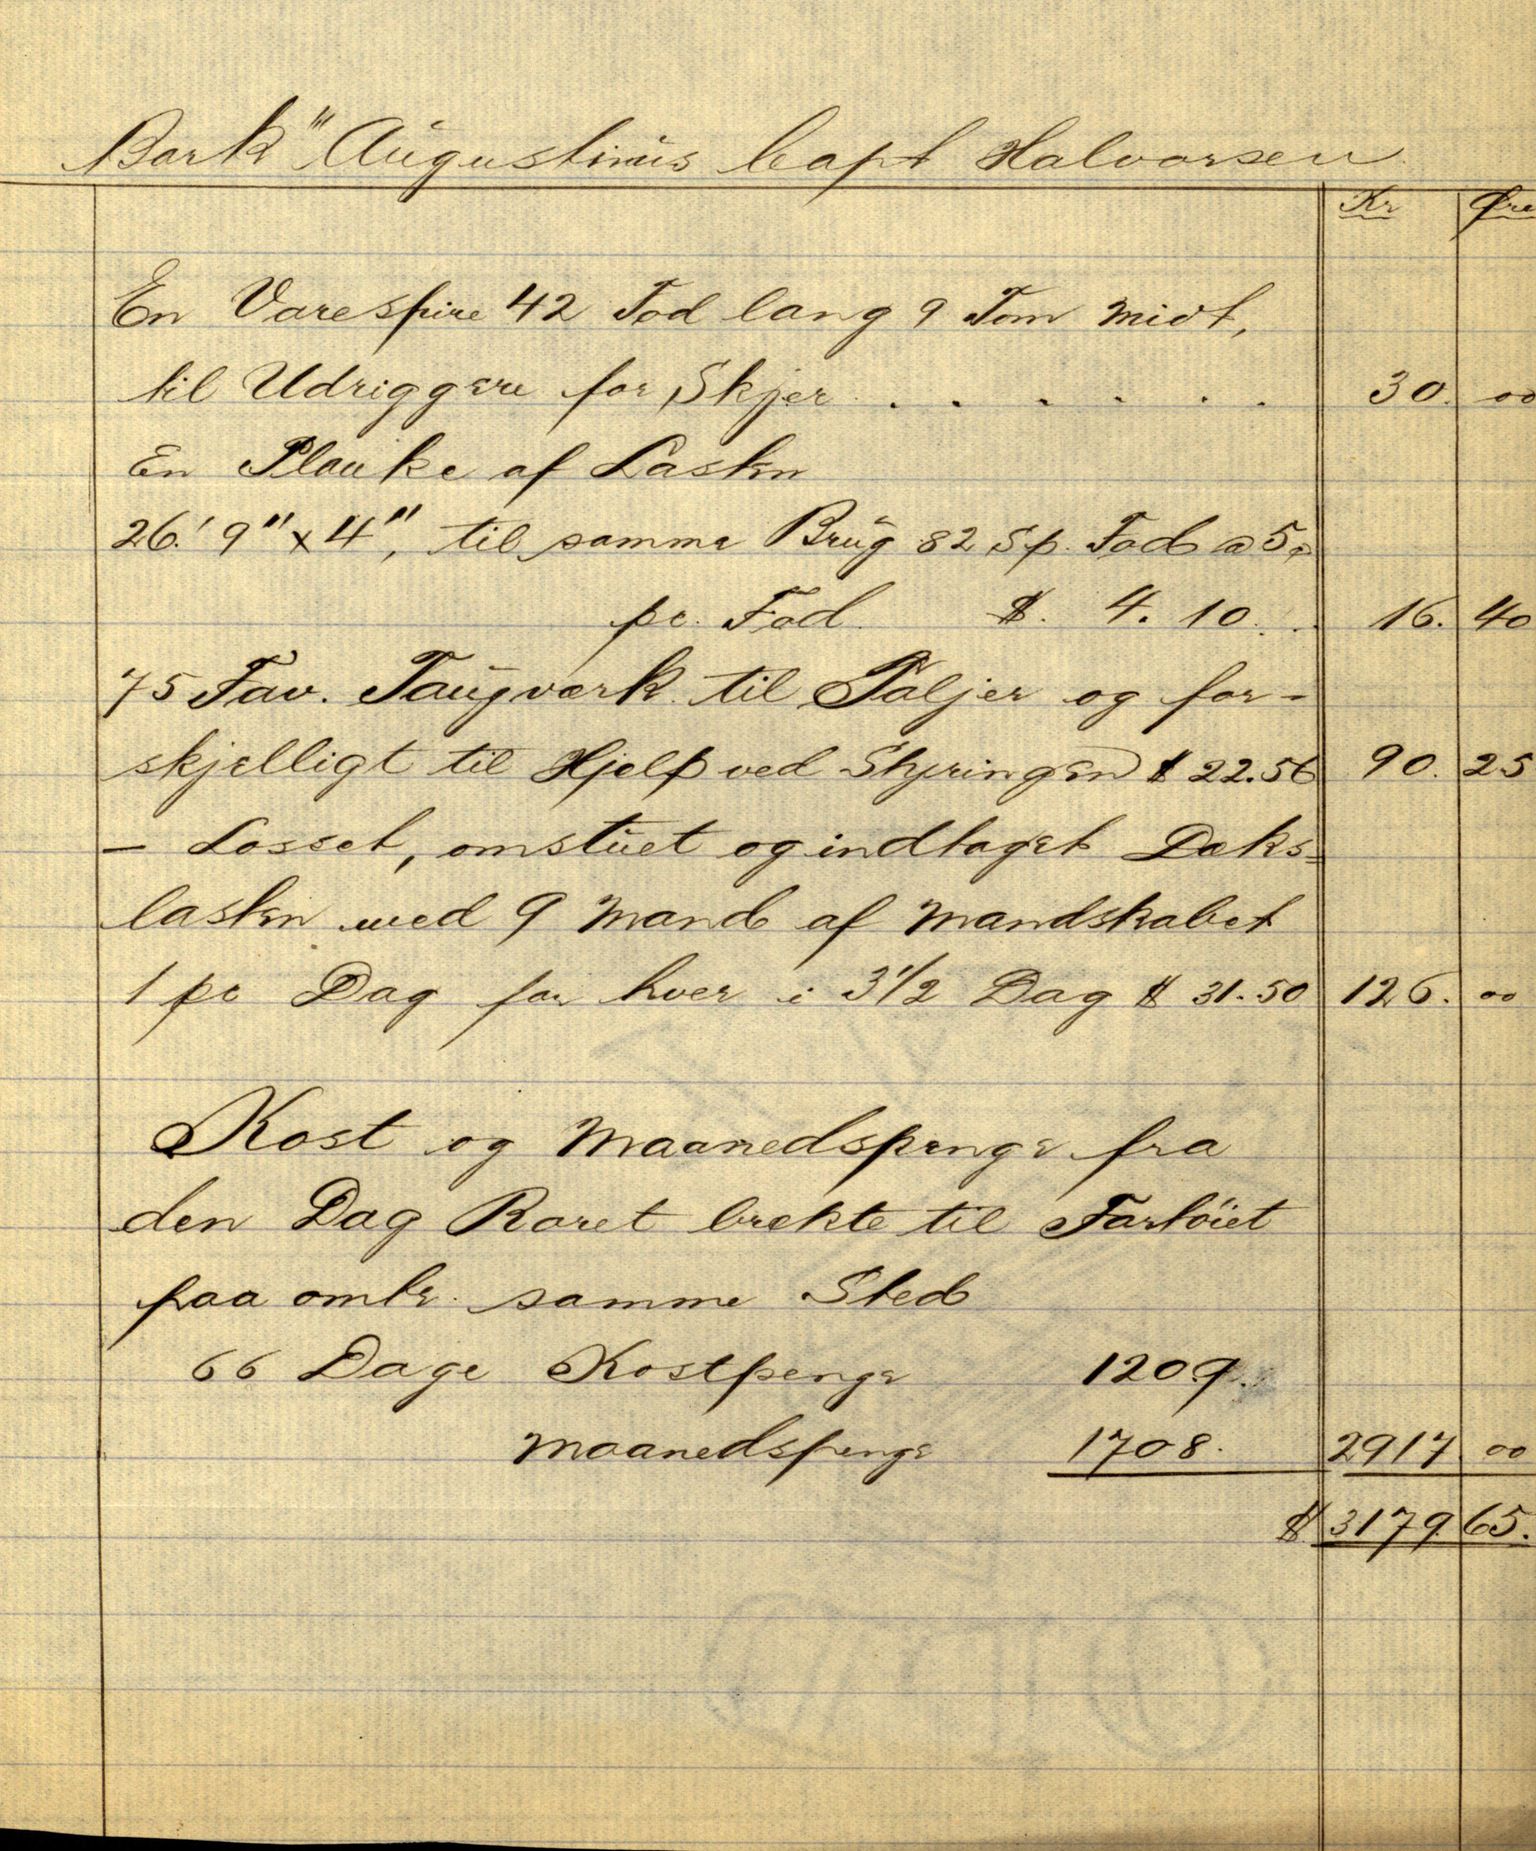 Bark "Augustinus Capt Halvorsen
Kr Øre
En Varespire 42 Fod lang 9 Tom midt,
til Udriggere for Skjer . . . . . . 30. 00
En Planke af Lasten
26.' 9" x 4", til samme Brug 82 Sp. Fod @ 5
pr. Fod. $. 4. 10. . 16. 40
75 Fav. Taugværk til Taljer og for-
skjelligt til Hjelp ved Styringen $ 22.56 90. 25
- Losset, omstuet og indtaget Dæks=
lasten med 9 Mand af Mandskabet
1 pr Dag for hver i 3 1/2 Dag $ 31.50 126. 00
Kost og Maanedspenge fra
den Dag Roret brækte til Fartöiet
paa omtr. samme Sted
66 Dage Kostpenge 1209.
Maanedspenge 1708. 2917 00
$ 3179 65.